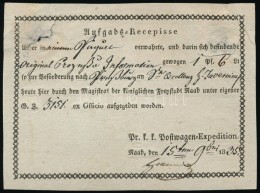 Aufgabs-Recepisse
Über in einem Paquet verwahrte, und darin sich befindende
Original Prozess Information gewogen 1 Pf. 6 L.
so zur Beförderung nach
heute hier durch den Magistrat der Königlichen Freystadt Raab unter eigener
G. Z. 3151 ex Officio aufgegeben worden.
Pr. k. k. Postwagen-Expedition.
Raab, den 15ten 9ber 1835